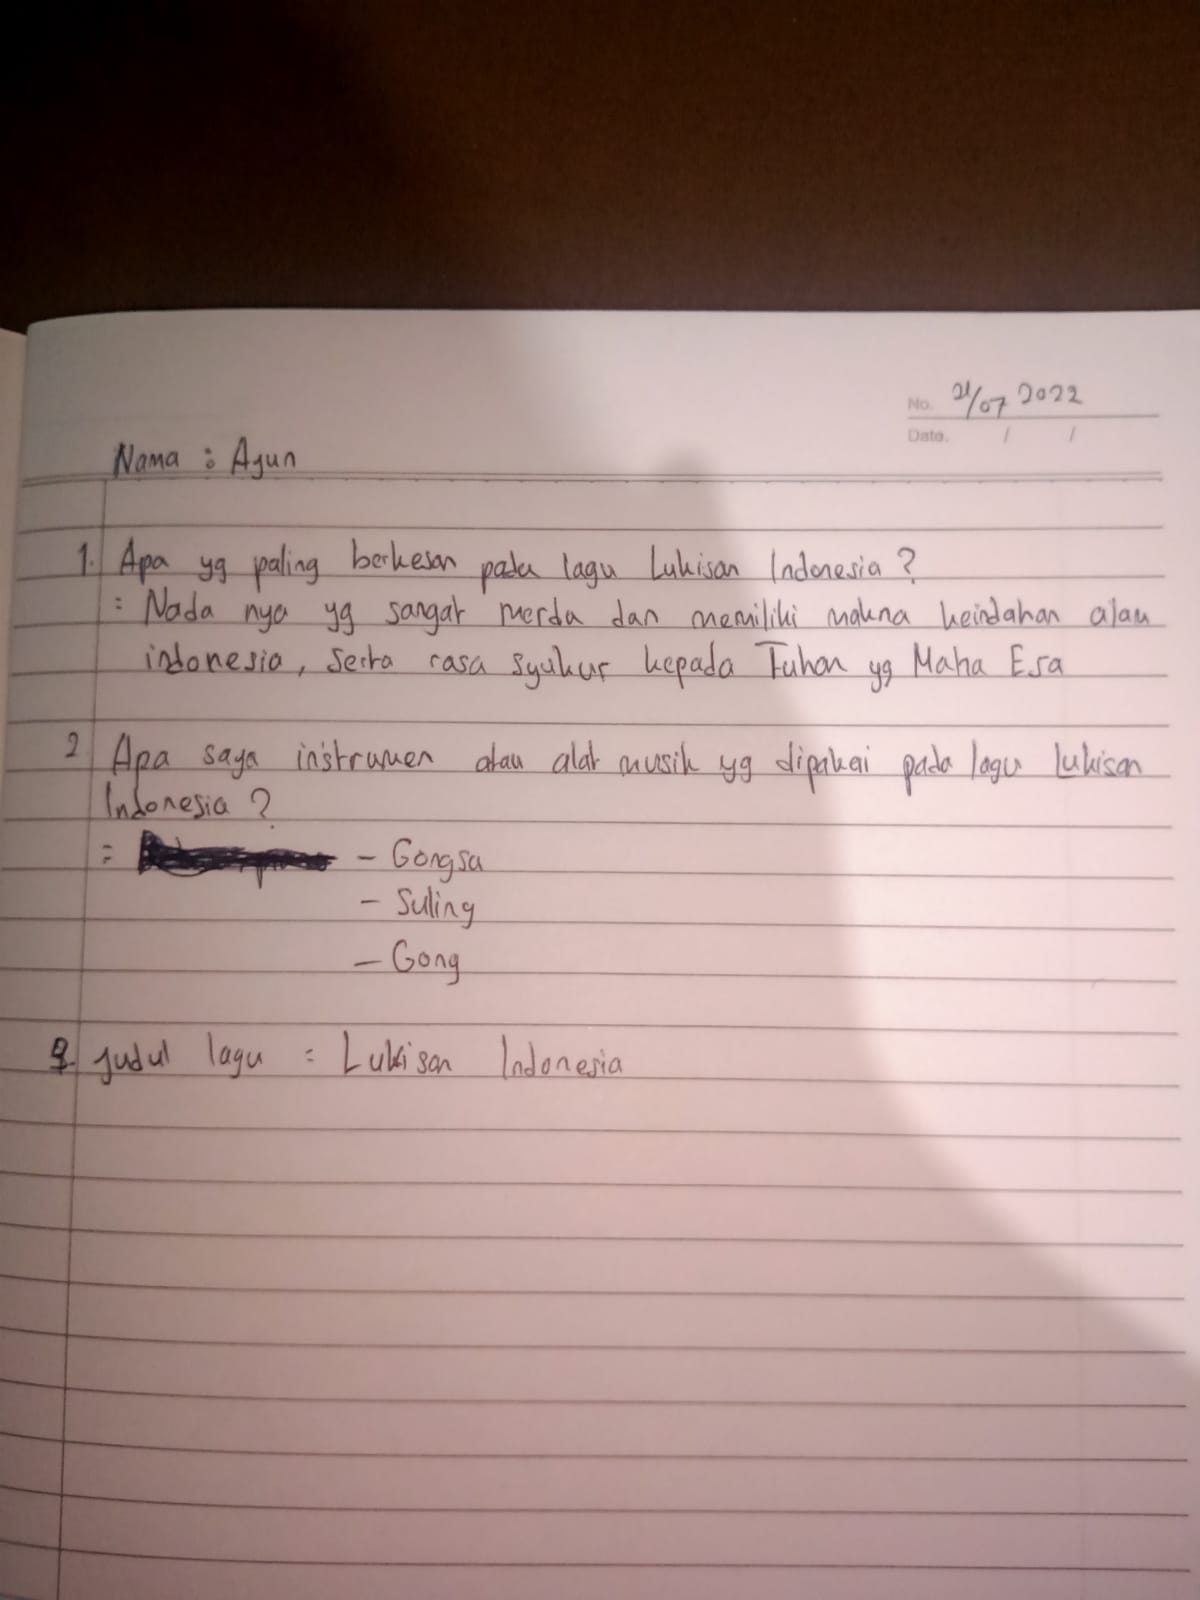 No. 21/07 2022
Date. / /
Nama : Ayun
1. Apa yg paling berkesan pada lagu Lukisan Indonesia ?
= Nada nya yg sangat merda dan memiliki makna keindahan alam
indonesia, serta rasa syukur kepada Tuhan yg Maha Esa
2 Apa saya instrumen atau alat musik yg dipakai pada lagu Lukisan
Indonesia ?
= - Gongsa
- Suling
- Gong
judul lagu = Lukisan Indonesia